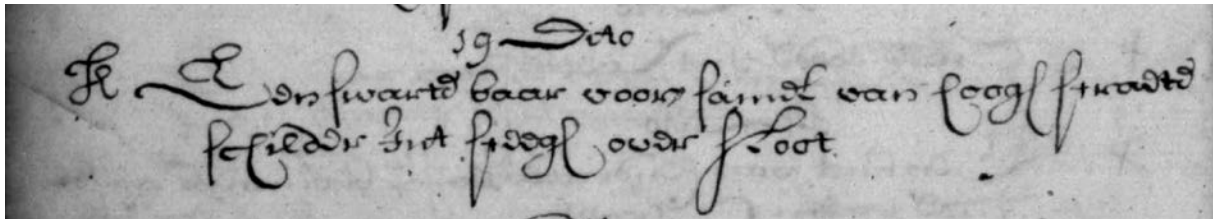 19 Dito
K Een swarte baar voor samel van hoogh straate
schilder Int steegh over sloot